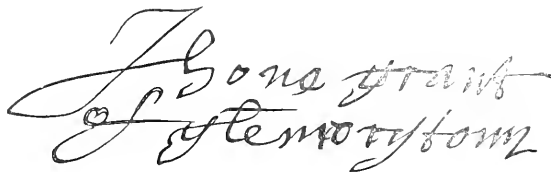 Jhone grant
of glemorystoun